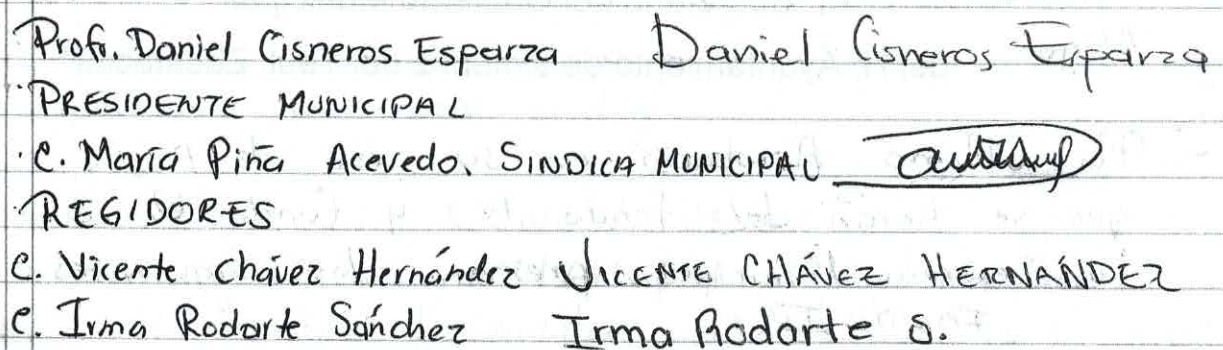 Prof. Daniel Cisneros Esparza Daniel Cisneros Esparza
PRESIDENTE MUNICIPAL
C. María Piña Acevedo. SINDICA MUNICIPAL
REGIDORES
C. Vicente Chávez Hernández VICENTE CHÁVEZ HERNÁNDEZ
C. Irma Rodarte Sánchez Irma Rodarte S.